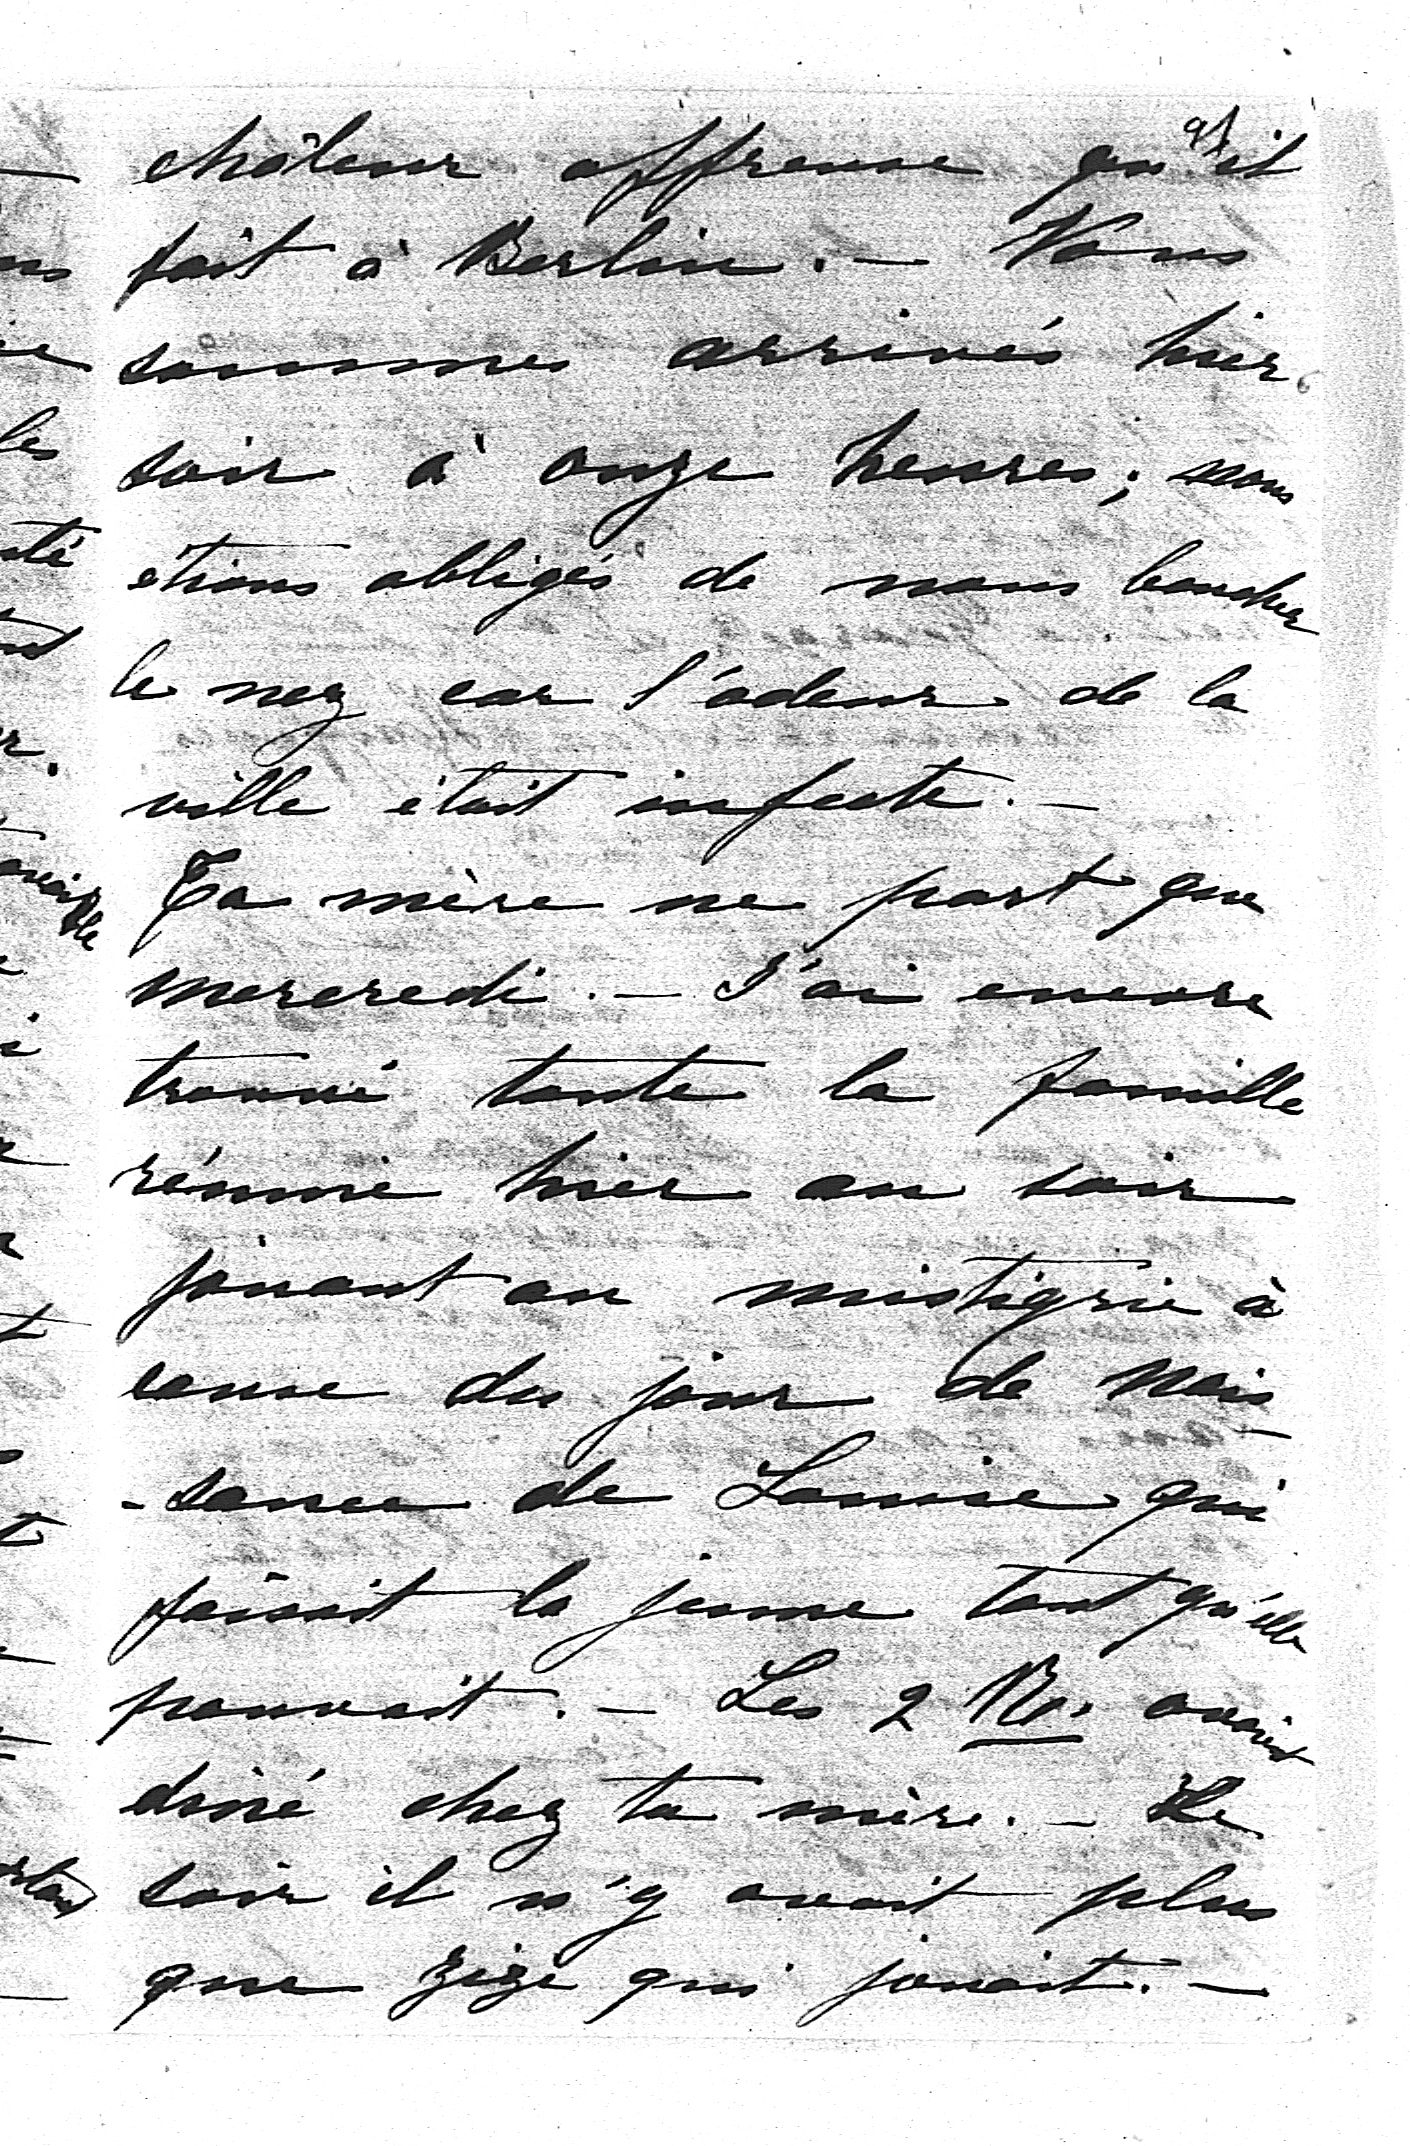 châleur affreuse qu'il
fait à Berlin. — Nous
sommes arrivés hier
soir à onze heures; nous
étions obligés de nous boucher
le nez car l'odeur de la
ville était infecte. —
Ta mère ne part que
mercredi. — J'ai encore
trouvé toute la famille
réunie hier au soir
jouant au mistigrie à
cause du jour de Nais-
-sance de Louise qui
faisait la jeune tant qu'elle
pouvait. — Les 2 avaient
dîné chez ta mère. — Le
soir il n'y avait plus
que Zizi qui jouait. —